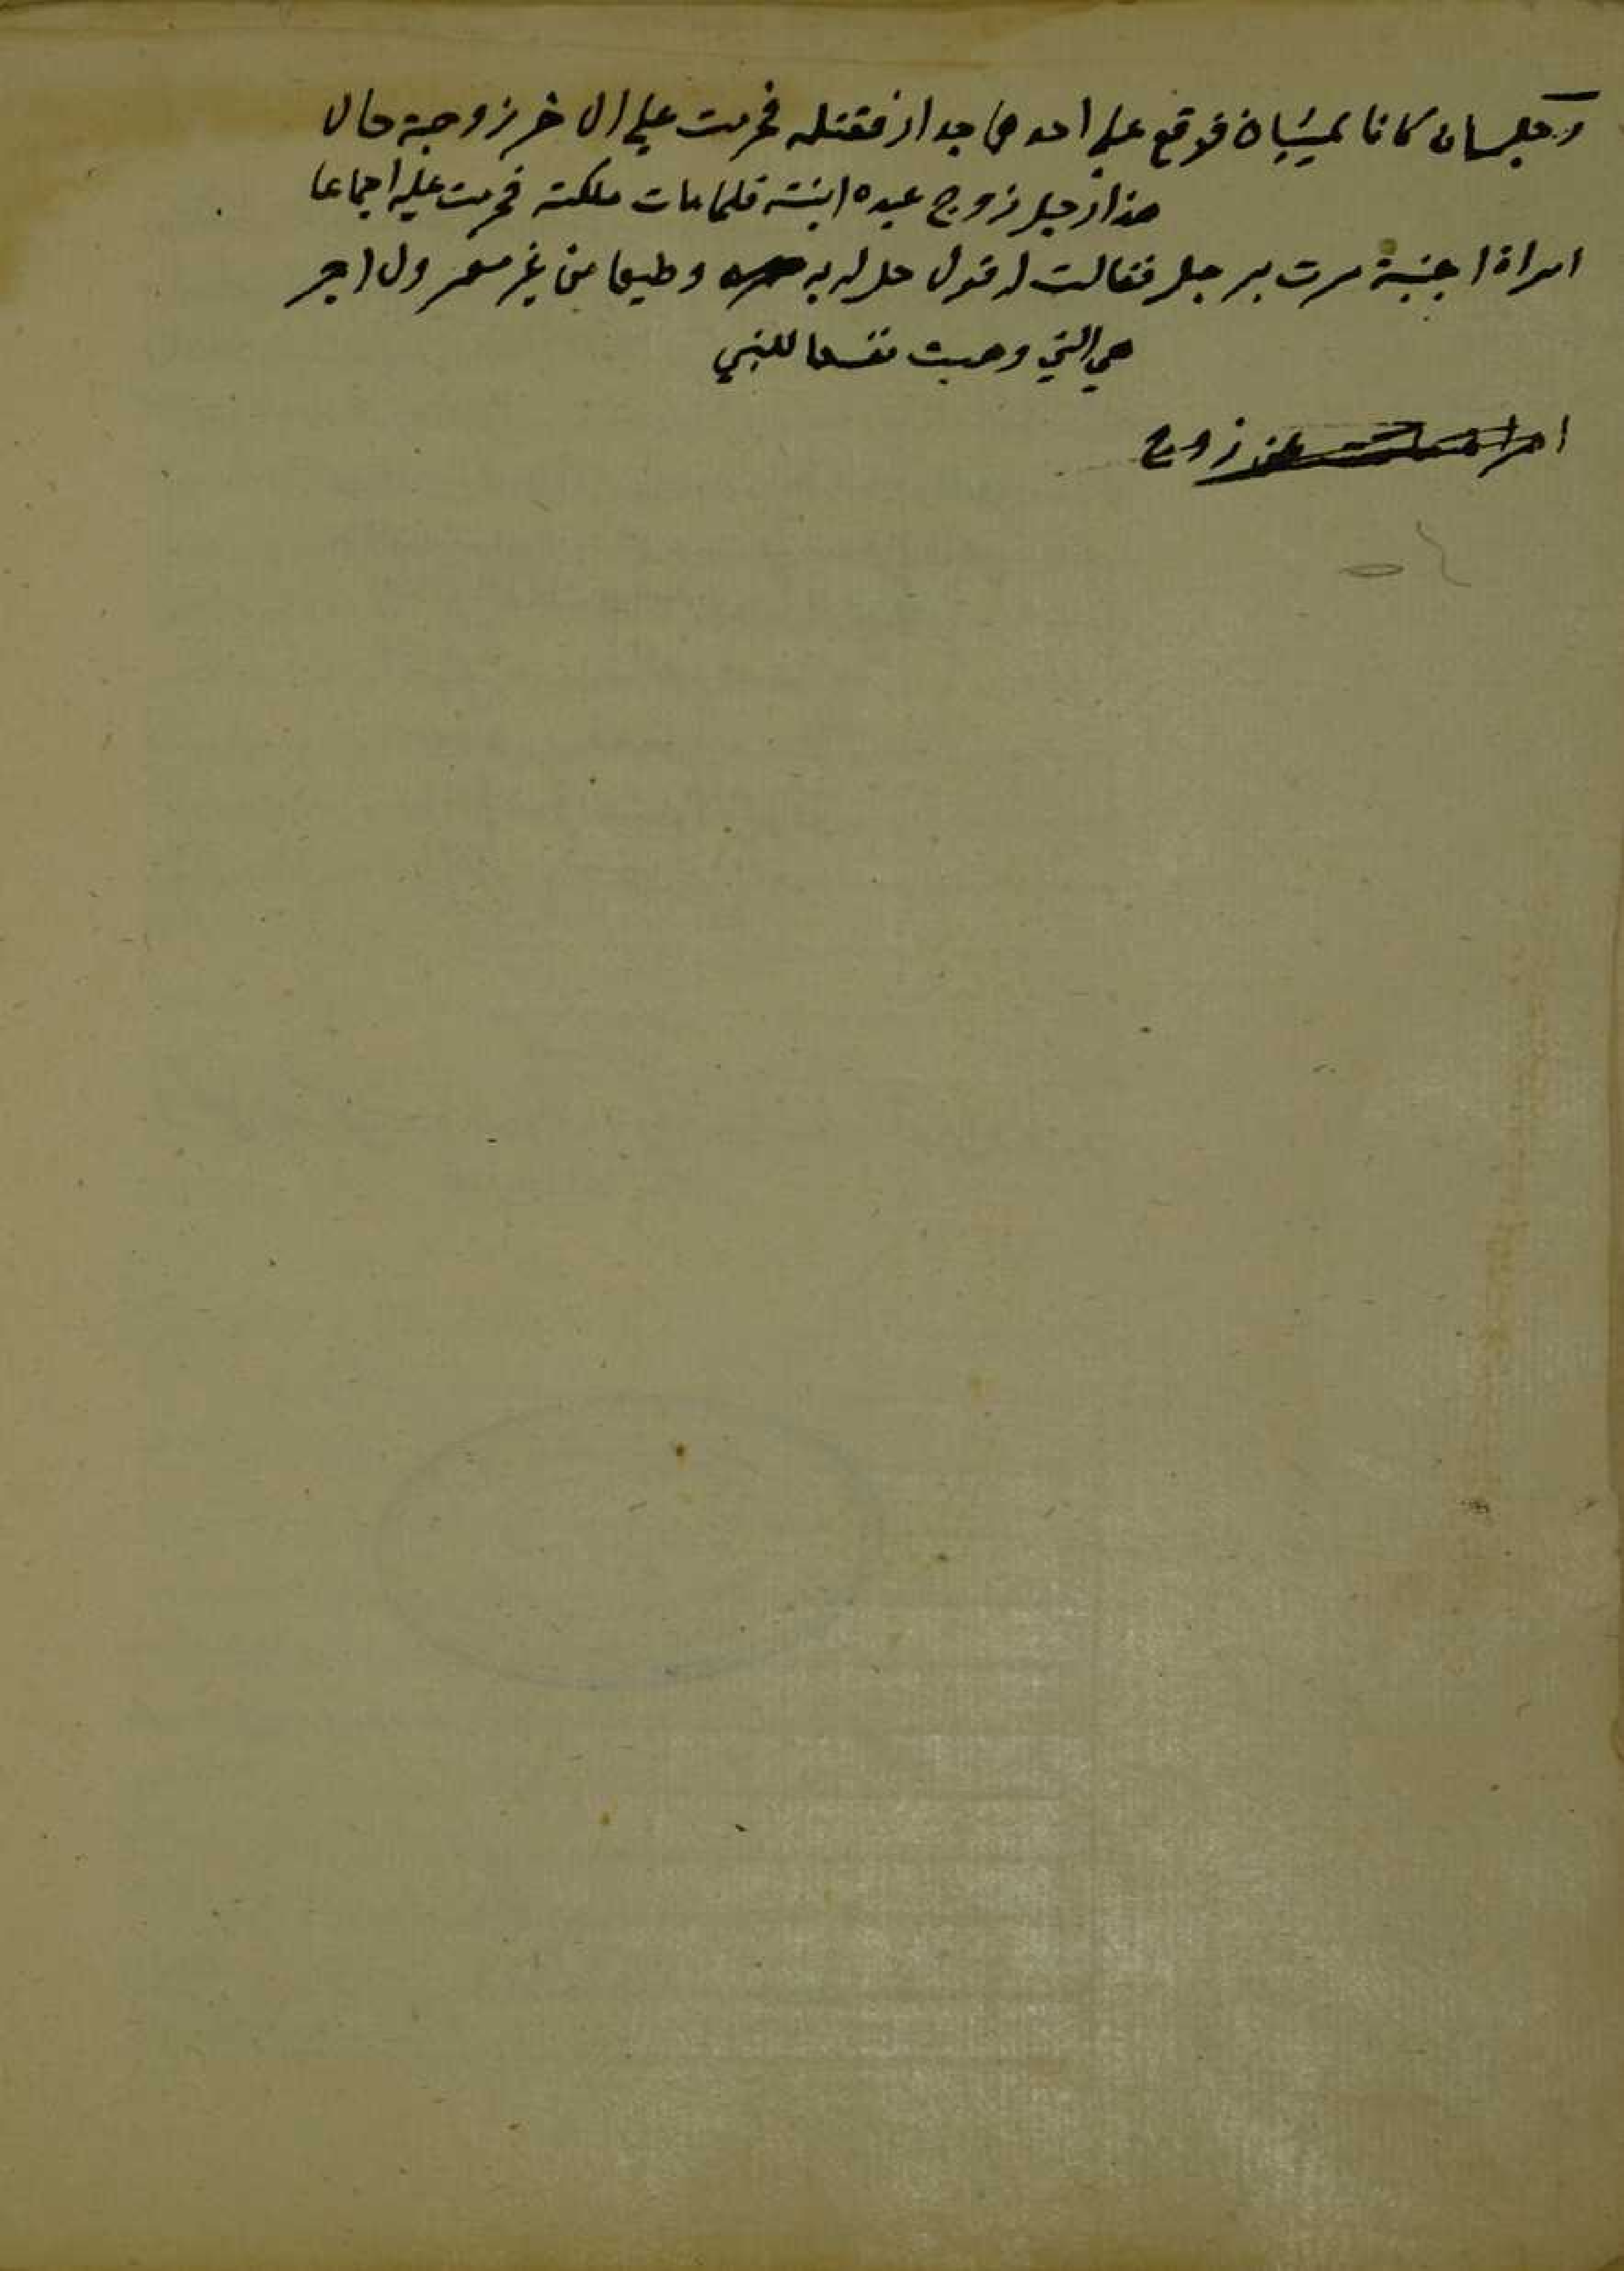 رجلان كانا يمشيان فوقع علي احدهما جدار فقتله فحرمت علي الاخر زوجته حالا
هذا رجل زوج عبده ابنته فلما مات ملكته فحرمت عليه اجماعا
امراة اجنبية مرت برجل فقالت له قولا حل له به وطيها من غير مهر ولا اجر
هي التي وهبت نفسها للنبي
زوج